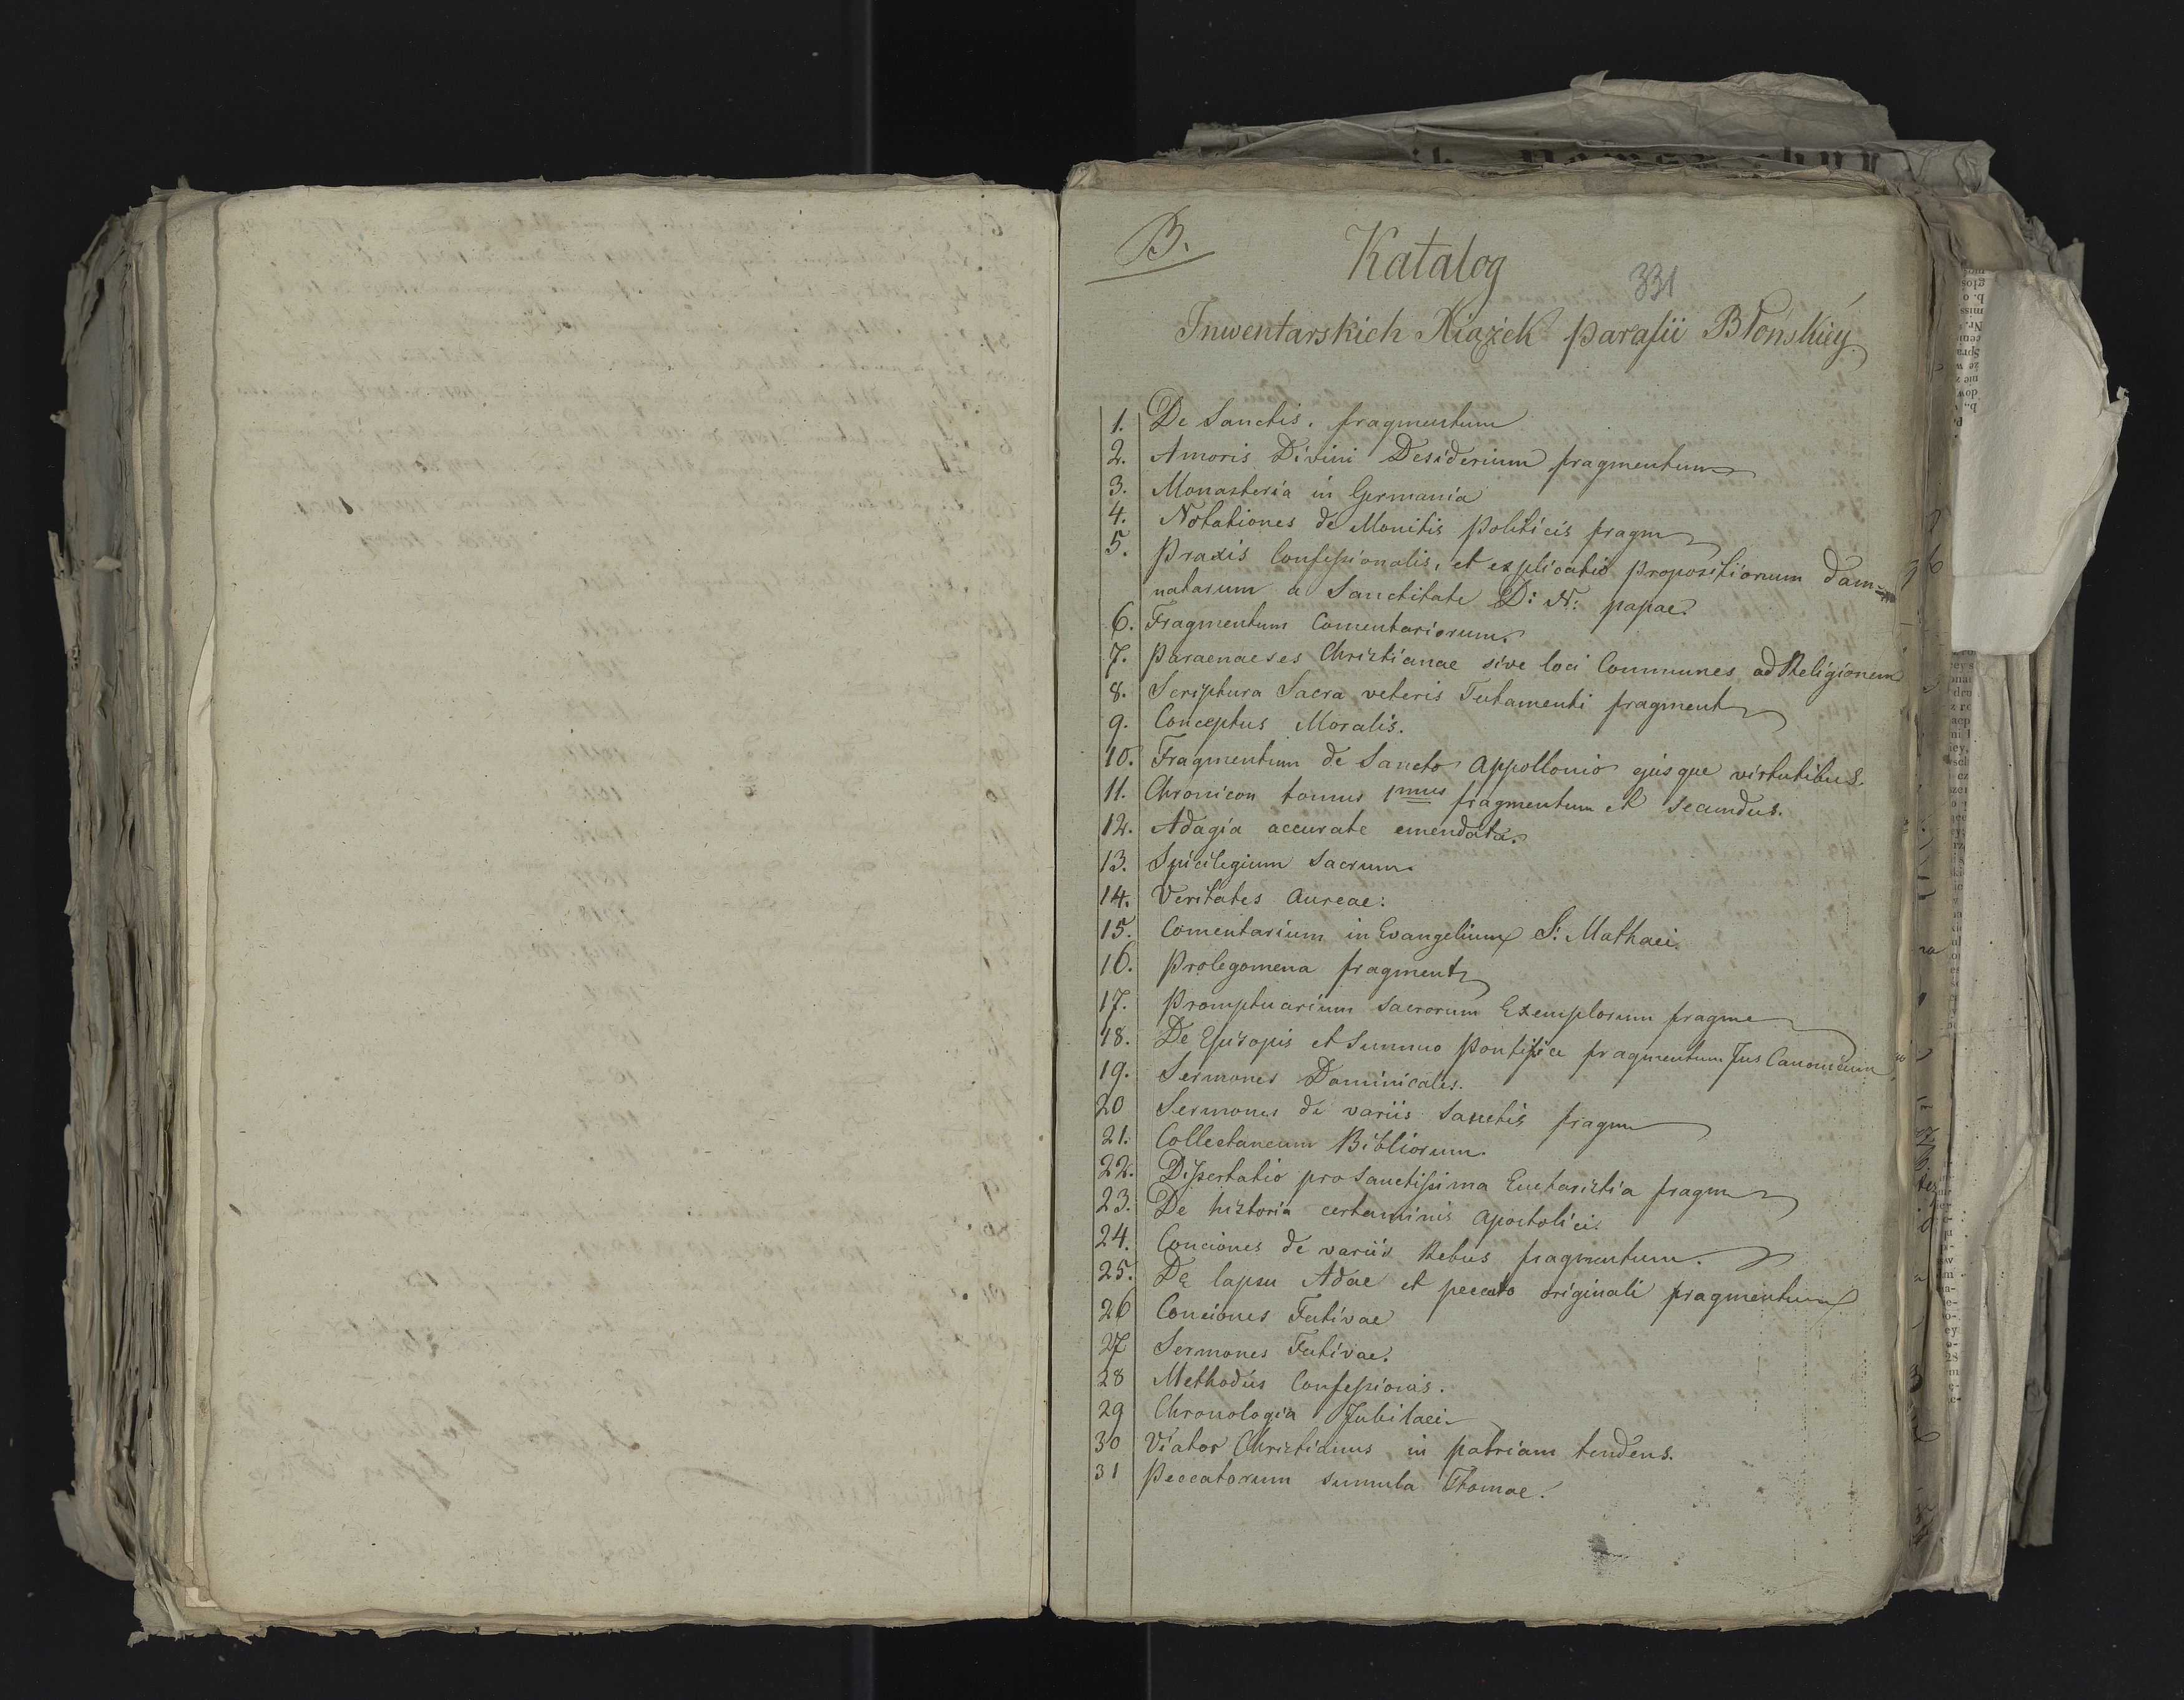 B.
Katalog
331
Inwentarskich Xiążek parafii Błońskiéy
1. De Sanctis. fragmentum
2. Amoris Divini Desiderium fragmentum
3. Monasteria in Germania
4. Notationes de Monitis politicis fragm
5. Praxis Confessionalis, et explicatio propositionum dam=
natarum a Sanctitate D: N: papae.
6. Fragmentum Comentariorum.
7. Paraenaeses Christianae sive loci Communes ad Religionem
8. Scriptura Sacra veteris Testamenti fragment
9. Conceptus Moralis.
10. Fragmentum de Sancto Appollonio ejusque virtutibus.
11. Chronicon tomus 1mus fragmentum et secundus.
12. Adagia accurate emendata.
13. Spicilegium Sacrum.
14. Veritates Aureae:
15. Comentarium in Evangelium S: Mathaei.
16. Prolegomena fragment
17. Promptuarium sacrorum Exemplorum fragme
18. De Episopis et Summo Pontifice fragmentum Jus Canonicum
19. Sermones Dominicales.
20 Sermones de variis Sanctis fragm
21. Collectaneum Bibliorum.
22. Dissertatio pro Sanctissima Eucharistia fragm
23. De historia certaminis Apostolicis
24. Conciones de variis Rebus fragmentum.
25. De lapsu Adae et peccato originali fragmentum
26 Conciones Festivae
27 Sermones Festivae.
28 Methodus Confessionis.
29 Chronologia Jubilaei
30 Viator Christianus in patriam tendens.
31 Peccatorum summula Thomae.